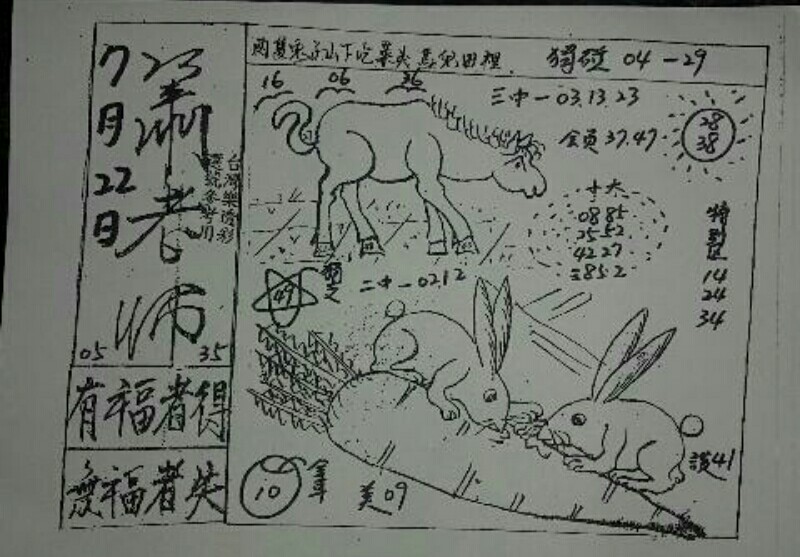 7月22日
蕭老師
台灣樂透彩
選號參考用
05 35
有福者得
無福者失
兩隻兔子山下吃菜头 馬兒田裡
獨碰 04-29
16 06 26
三中一 03.13.23
全員 37.47
28
38
十大
08 85
25 52
42 27
特別區
14
24
34
49
二中一 0212
10
美09
讚41